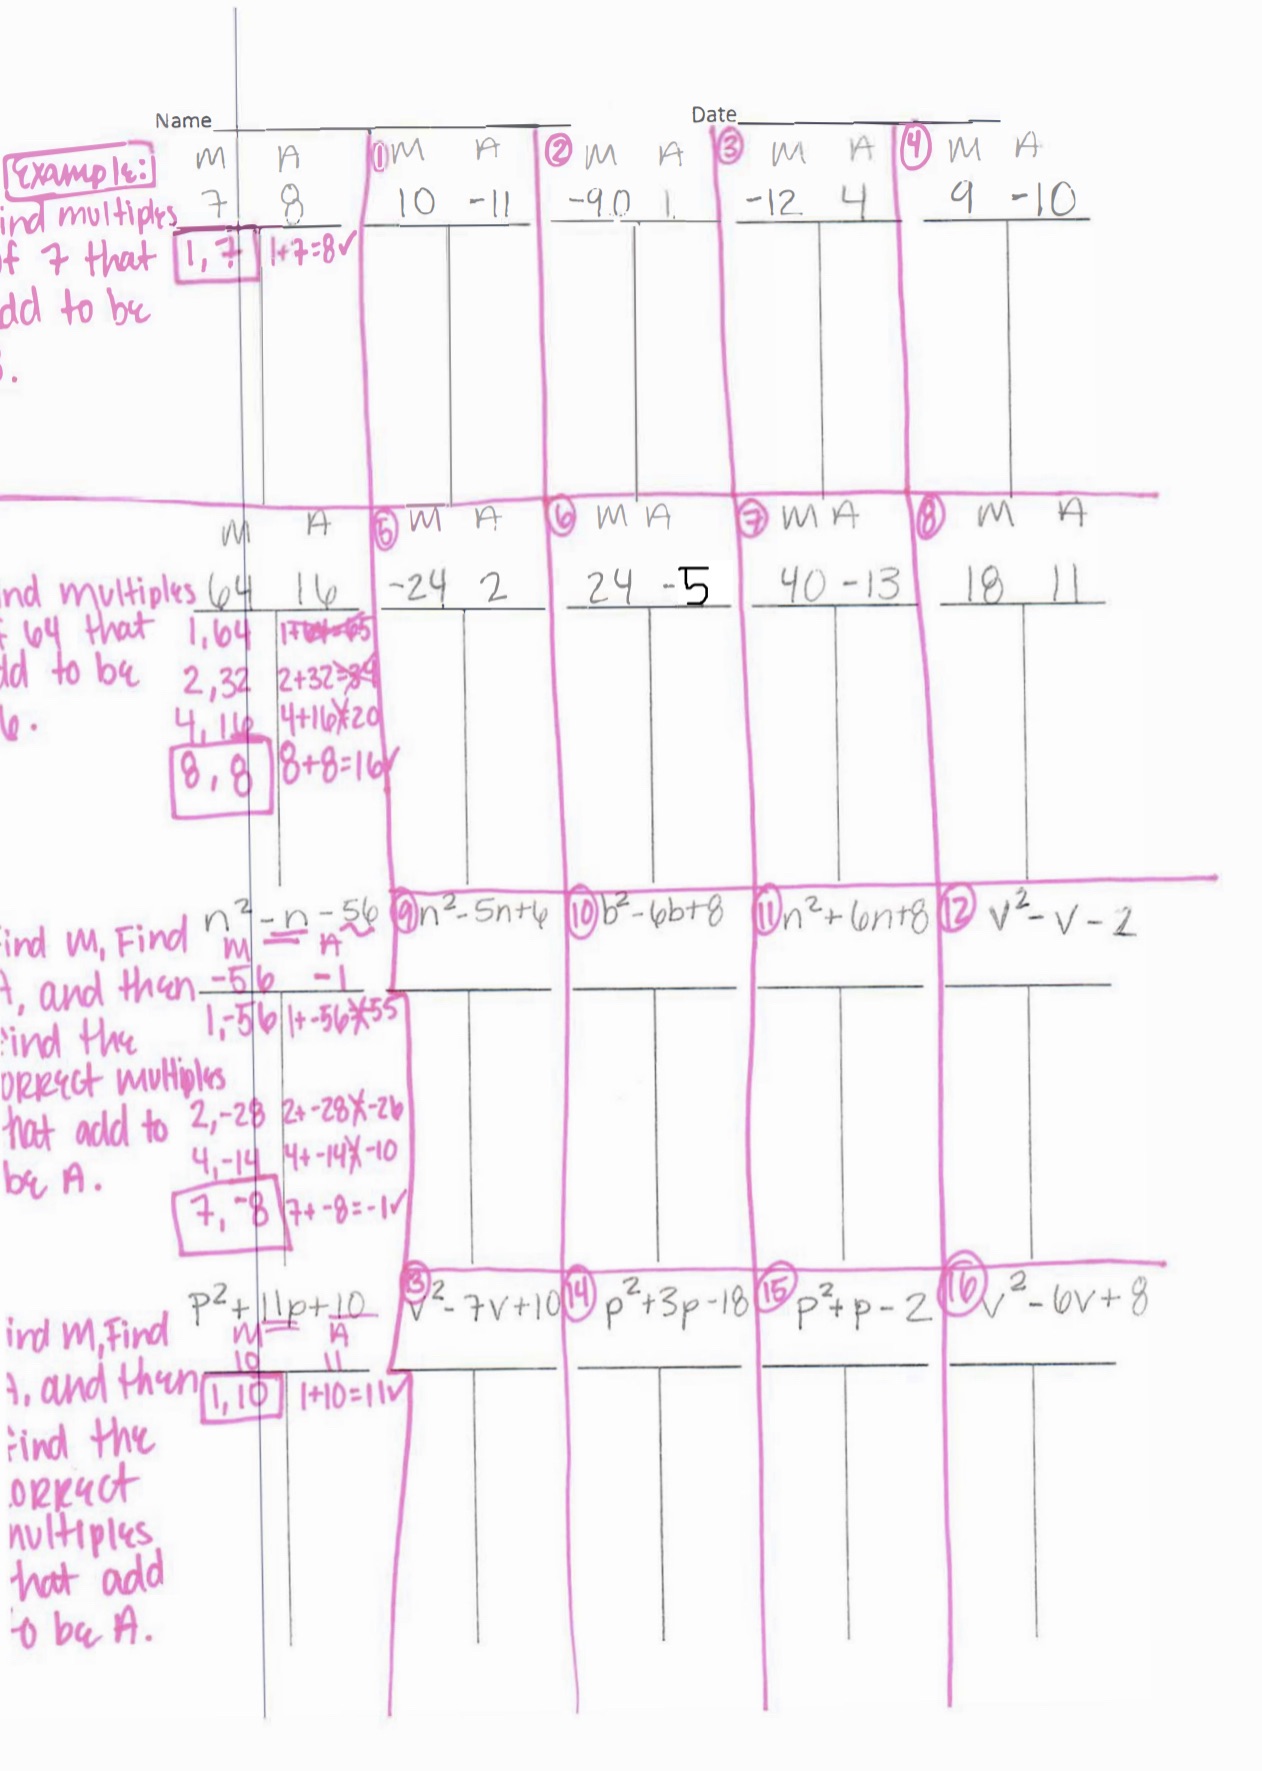 Name Date
Example:
M A
7 8
ind multiples
f 7 that
dd to be
1,7 1+7=8✓
① M A
10 -11
② M A
-90 1
③ M A
-12 4
④ M A
9 -10
M A
64 16
nd multiples
64 that
dd to be
6.
1,64 1+64=65
2,32 2+32=34
4,16 4+16=20
8,8 8+8=16✓
⑤ M A
-24 2
⑥ M A
24 -5
⑦ M A
40 -13
⑧ M A
18 11
n² - n - 56
M A
-56 -1
ind M, Find
A, and then
ind the
orrect multiples
hat add to
be A.
1,-56 1+-56=-55
2,-28 2+-28=-26
4,-14 4+-14=-10
7,-8 7+-8=-1✓
⑨ n²-5n+6
⑩ b²-6b+8
⑪ n²+6n+8
⑫ v²-v-2
p²+11p+10
M A
10 11
ind M, Find
A, and then
find the
orrect
multiples
hat add
to be A.
1,10 1+10=11✓
3 v²-7v+10
⑭ p²+3p-18
⑮ p²+p-2
⑯ v²-6v+8